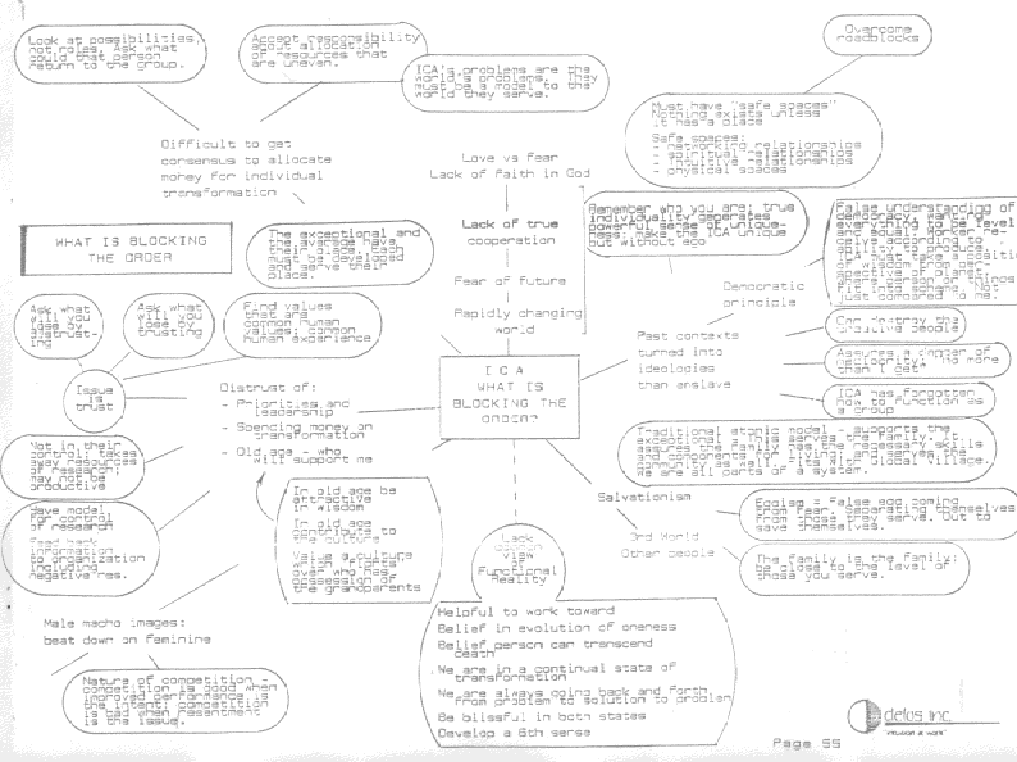 Look at possibilities,
not roles. Ask what
would that person
return to the group.
Accept responsibility
about allocation
of resources that
are uneven.
ICA's problems are the
world's problems. They
must be a model to the
world they serve.
Overcome
roadblocks
Must have "safe spaces"
Nothing exists unless
it has a place
Safe spaces:
- networking relationships
- spiritual relationships
- relationships
- physical spaces
Difficult to get
consensus to allocate
money for individual
transformation
Love vs fear
Lack of faith in God
Lack of true
cooperation
Fear of future
Rapidly changing
world
Remember who you are: true
individuality generates
powerful sense of unique-
ness: make the ICA unique
but without ego
False understanding of
democracy, wanting
everything done level
and equal. Worker
according to
ability to produce.
ICA must take a
of wisdom from per-
spective of planet,
where person or things
fit into scheme. Not
just compared to me.
WHAT IS BLOCKING
THE ORDER
The exceptional and
the average have
their place. Each
must be developed
and serve their
place.
Democratic
principle
Ask what
will you
lose by
trust-
ing
Ask what
will you
lose by
trusting
Find values
that are
common human
values; common
human experience
Past contexts
turned into
ideologies
than enslave
Can destroy the
creative people
Assures a
mediocrity; "no more
than I get"
ICA has forgotten
how to function as
a group
Issue
is
trust
Distrust of:
- Priorities and
leadership
- Spending money on
transformation
- Old age - who
will support me
ICA
WHAT IS
BLOCKING THE
ORDER?
Traditional atomic model - supports the
exceptional - This serves the family. It
assures the family has the necessary skills
and components for living; and serves the
community as self, its wit global village.
We are all parts of a system.
Not in their
control; takes
away resources
as research;
may not be
productive
Have model
for control
of research
Feed back
information
to organization
including
negative res.
In old age be
attractive
in wisdom
In old age
contribute to
the culture
Value a culture
which fights
over who has
possession of
the grandparents
Salvationism
3rd World
Other people
Egoism = False ego coming
from fear. Separating themselves
from those they serve. Out to
save themselves.
The family is the family:
Be close to the level of
those you serve.
Lack
common
view
of
Functional
Reality
Male macho images:
beat down on feminine
Nature of competition -
competition is good when
improved performance is
the intent; competition
is bad when resentment
is the issue.
Helpful to work toward
Belief in evolution of oneness
Belief person can transcend
death
We are in a continual state of
transformation
We are always going back and forth
from problem to solution to problem
Be blissful in both states
Develop a 6th sense
delos inc.
Page 55